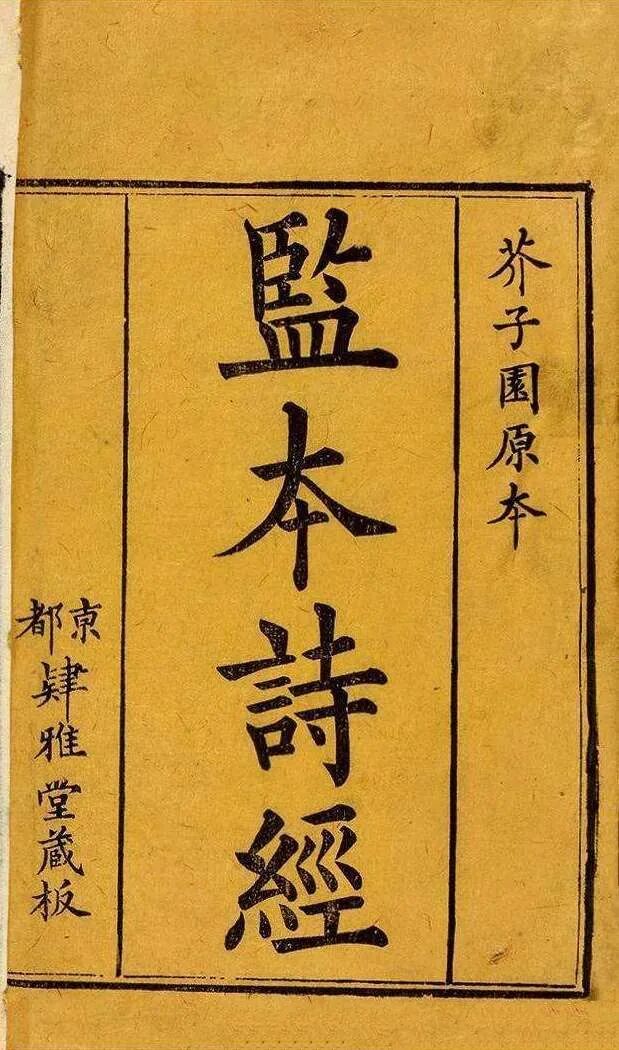 芥子園原本
監本詩經
京都肄雅堂藏板